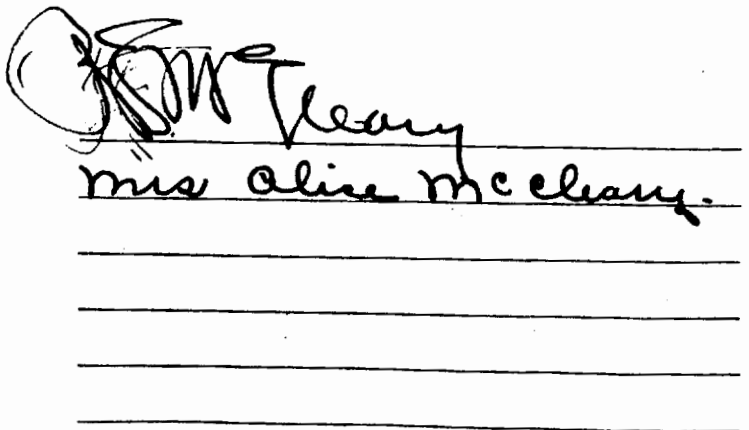 McCleary
Mrs Alice McCleary.